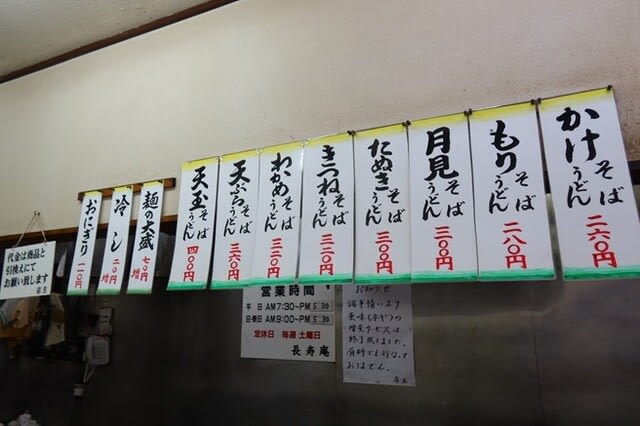 かけ そば うどん 二六〇円
もり そば うどん 二八〇円
月見 そば うどん 三〇〇円
たぬき そば うどん 三〇〇円
きつね そば うどん 三二〇円
わかめ そば うどん 三二〇円
天ぷら そば うどん 三六〇円
天玉 そば うどん 四〇〇円
麺の大盛 七〇円増
冷し 二〇円増
おにぎり 一一〇円
代金は商品と
引換えにて
お願い致します
店主
営業時間
平日 AM7:30~PM5:30
日・祭日 AM9:00~PM5:30
定休日 毎週土曜日
長寿庵
お知らせ
諸事情により
終了致しました。
おりません。
店主